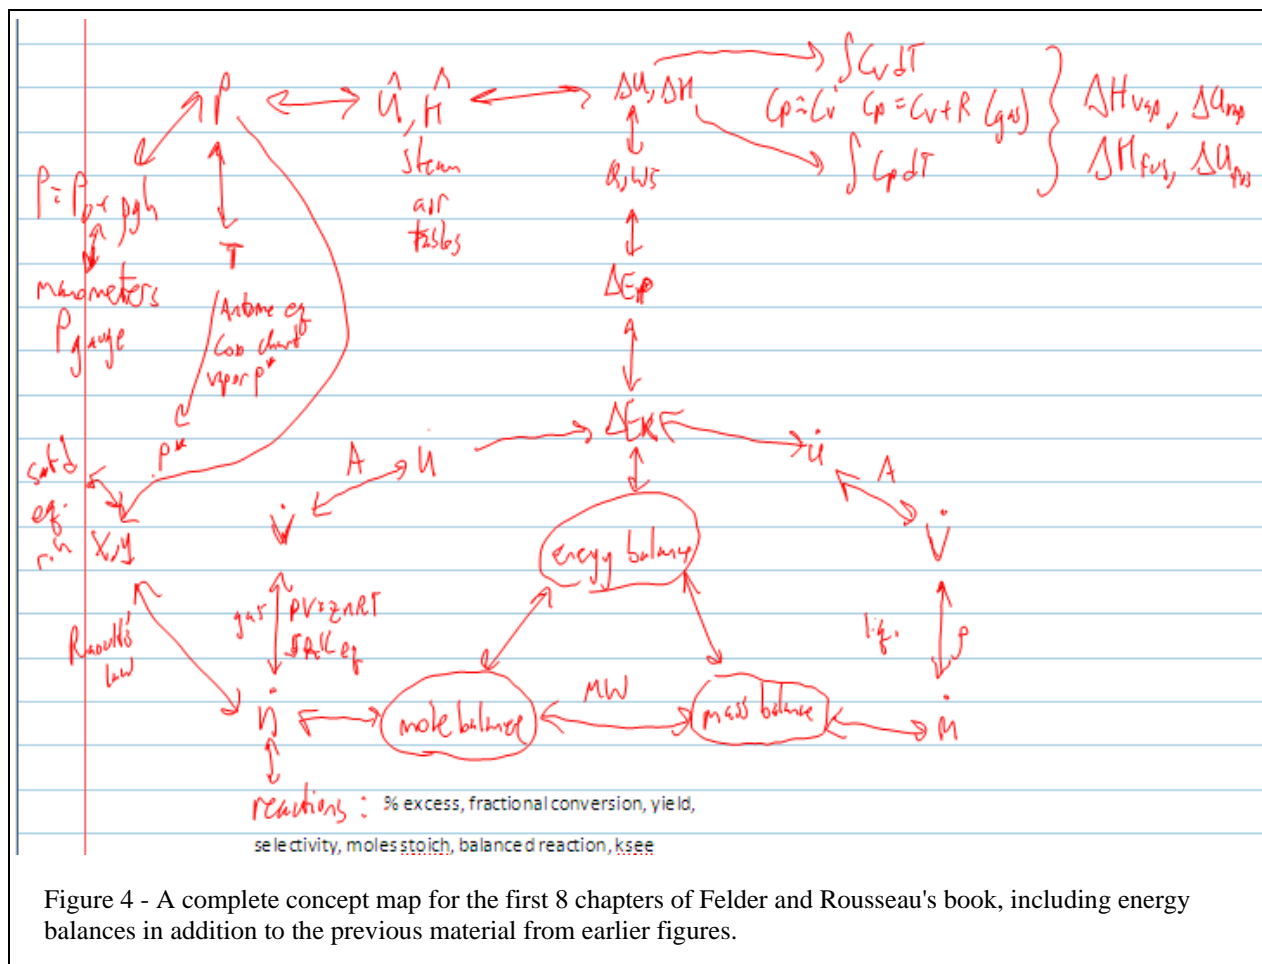 P
Û, Ĥ
steam
air
tables
ΔU, ΔH
∫CvdT
Cp=Cv Cp=Cv+R (gas)
∫CpdT
ΔHvap, ΔUvap
ΔHfus, ΔUfus
Q, Ws
P=Po+ρgh
manometers
Pgauge
T
Antoine eq
Cox chart
vapor P*
P*
ΔEp
ΔEk
sat'd
eq.
r.h
x,y
A
u̇
V̇
u̇
A
V̇
energy balance
gas
PV=znRT
SRK eq
liq.
ρ
Raoult's
law
ṅ
mole balance
MW
mass balance
ṁ
reactions: % excess, fractional conversion, yield,
selectivity, moles stoich, balanced reaction, ksee
Figure 4 - A complete concept map for the first 8 chapters of Felder and Rousseau's book, including energy
balances in addition to the previous material from earlier figures.